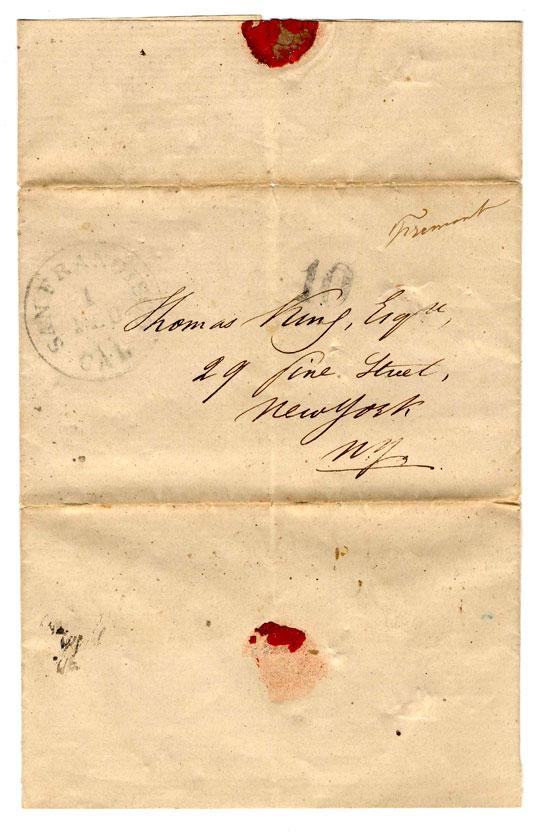 Fremont
SAN FRANCISCO
1
CAL
10
Thomas King, Esqre,
29 Pine Street,
New York
N.Y.